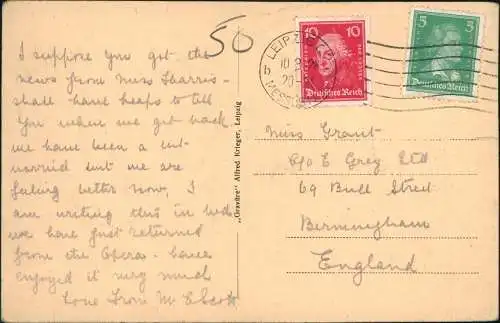 50
I suppose you got the
news from Miss Sharris-
shall have heaps to tell
you when we get back
we have been a bit
worried but we are
feeling better now, I
am writing this in bed
we have just returned
from the Opera- have
enjoyed it very much
Love from M E Scott
"Gravüre" Alfred Krieger, Leipzig
LEIPZIG
MESS
10
10
Deutsches Reich
5
5
Deutsches Reich
Miss Grant
c/o E Grey Ltd
69 Bull Street
Bermingham
England